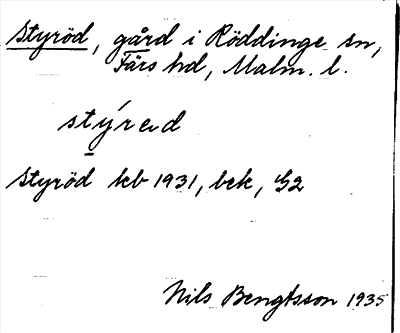 Styröd, gård i Röddinge sn,
Färs hd, Malm. l.
stýred
Styröd kb 1931, bek, G2
Nils Bengtsson 1935